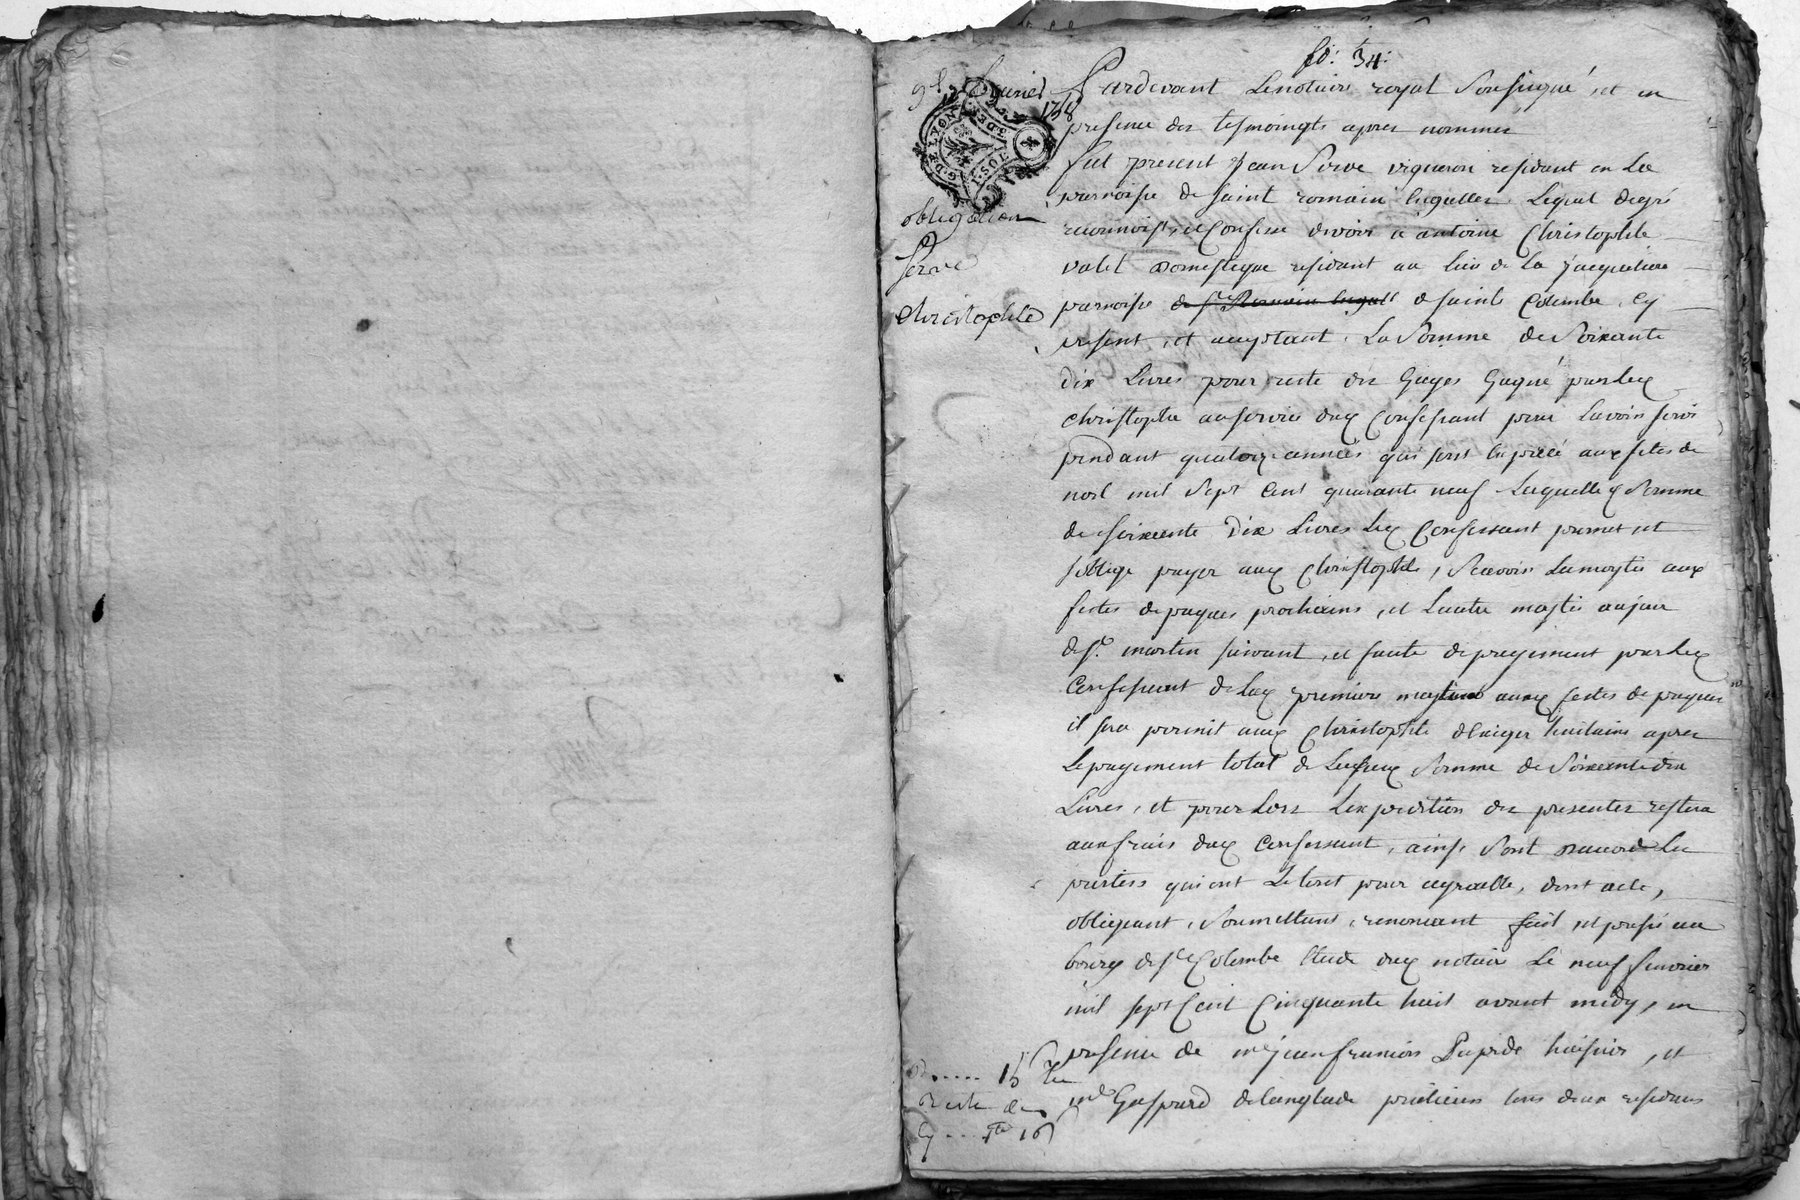 fo: 34:
9e fevrier 1758
G. DE LYON
obligation
Serve
Christophle
Pardevant Le notaire royal Sousigné, et en
presence des tesmoingts apres nommés
fut present Jean Serve vigneron residant en La
parroisse de saint romain Lequel de gré
reconnoist, et Confesse devoir a antoine Christophle
valet domestique residant au lieu de La Jacquetiere
parroisse de st Romain d sainte Colombe, Cy
present, et acceptant, La Somme de Soixante
dix Livres pour reste des Gages Gagné par led
Christophle au service dud Confessant pour Lavoir servi
pendant quatorze années qui sont expiréé aux fetes de
noel mil Sept Cent quarante neuf Laquelle d Somme
de soixcente Dix Livres Led Confessant promet et
soblige payer aud Christophle, Scavoir La moytié aux
festes de paques prochains, et Lautre moytié au jour
de st. martin suivant, et faute de payement par Led
Confessant de Lad premiere moytié aux festes de paques
il sera permit aud Christophle dexiger huitaine apres
Le payement total de Somme de Soixcente dix
Livres, et pour Lors Lexpedition des presentes restera
aux frais dud Confessant, ainsi Sont daccord Les
parties qui ont Le tout pour agreable, dont acte,
obligeant, Soumettant, renoncant fait et passé au
bourg de ste Colombe Etude dud notaire Le neuf fevrier
mil sept Cent Cinquante huit avant midy, en
presence de me jean francois Papide huissier, et
md Gaspard delanglade praticien tous deux residants
15
Reste
Cy 16